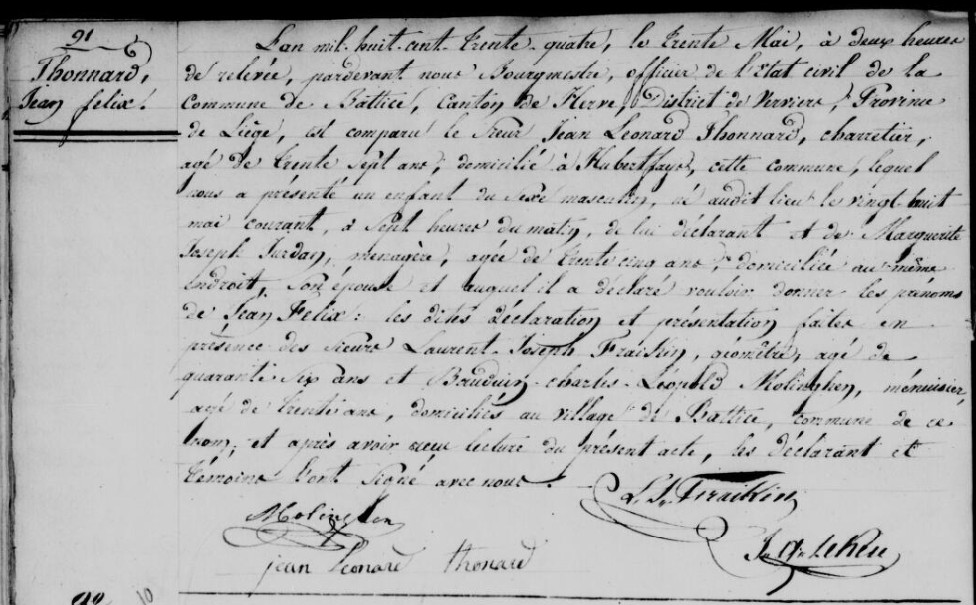 91
Thonnard,
Jean felix.
L'an mil-huit-cent-trente-quatre, le trente Mai, à deux heures
de relevée, pardevant nous Bourgmestre, officier de l'Etat civil de la
Commune de Battice, Canton de Herve, District de Verviers, Province
de Liège, est comparu le sieur Jean Leonard Thonnard, charretier,
agé de trente sept ans, domicilié à Hubertfays, cette commune, lequel
nous a présenté un enfant du sexe masculin, né audit lieu le vingt-huit
mai courant, à sept heures du matin, de lui déclarant et de Marguerite
Joseph Jurdan, menagère, agée de trente cinq ans, domiciliée au même
endroit, son épouse et auquel il a déclaré vouloir donner les prénoms
de Jean Felix: les dites déclaration et présentation faites en
présence des sieurs Laurent-Joseph Fraikin, géomètre, agé de
quarante-six ans et Bauduin-charles-Léopold Molinghen, ménuisier,
agé de trente ans, domiciliés au village de Battice, commune de ce
nom; et après avoir eu lecture du présent acte, les déclarant et
témoins l'ont signé avec nous.
L. J. Fraikin
Molinghen
jean leonard thonard
92
10